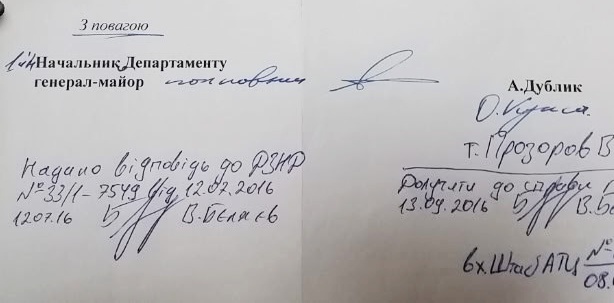 З повагою
Начальник Департаменту
генерал-майор полковник
А.Дублик
т. Прозоров В
Надано відповідь до РЗНР
№33/1-7549 від 12.02.2016
12.07.16 В.Бєляєв
Долучити до справи
13.09.2016 В.Бє
вх. Штаб АТЦ №
08.